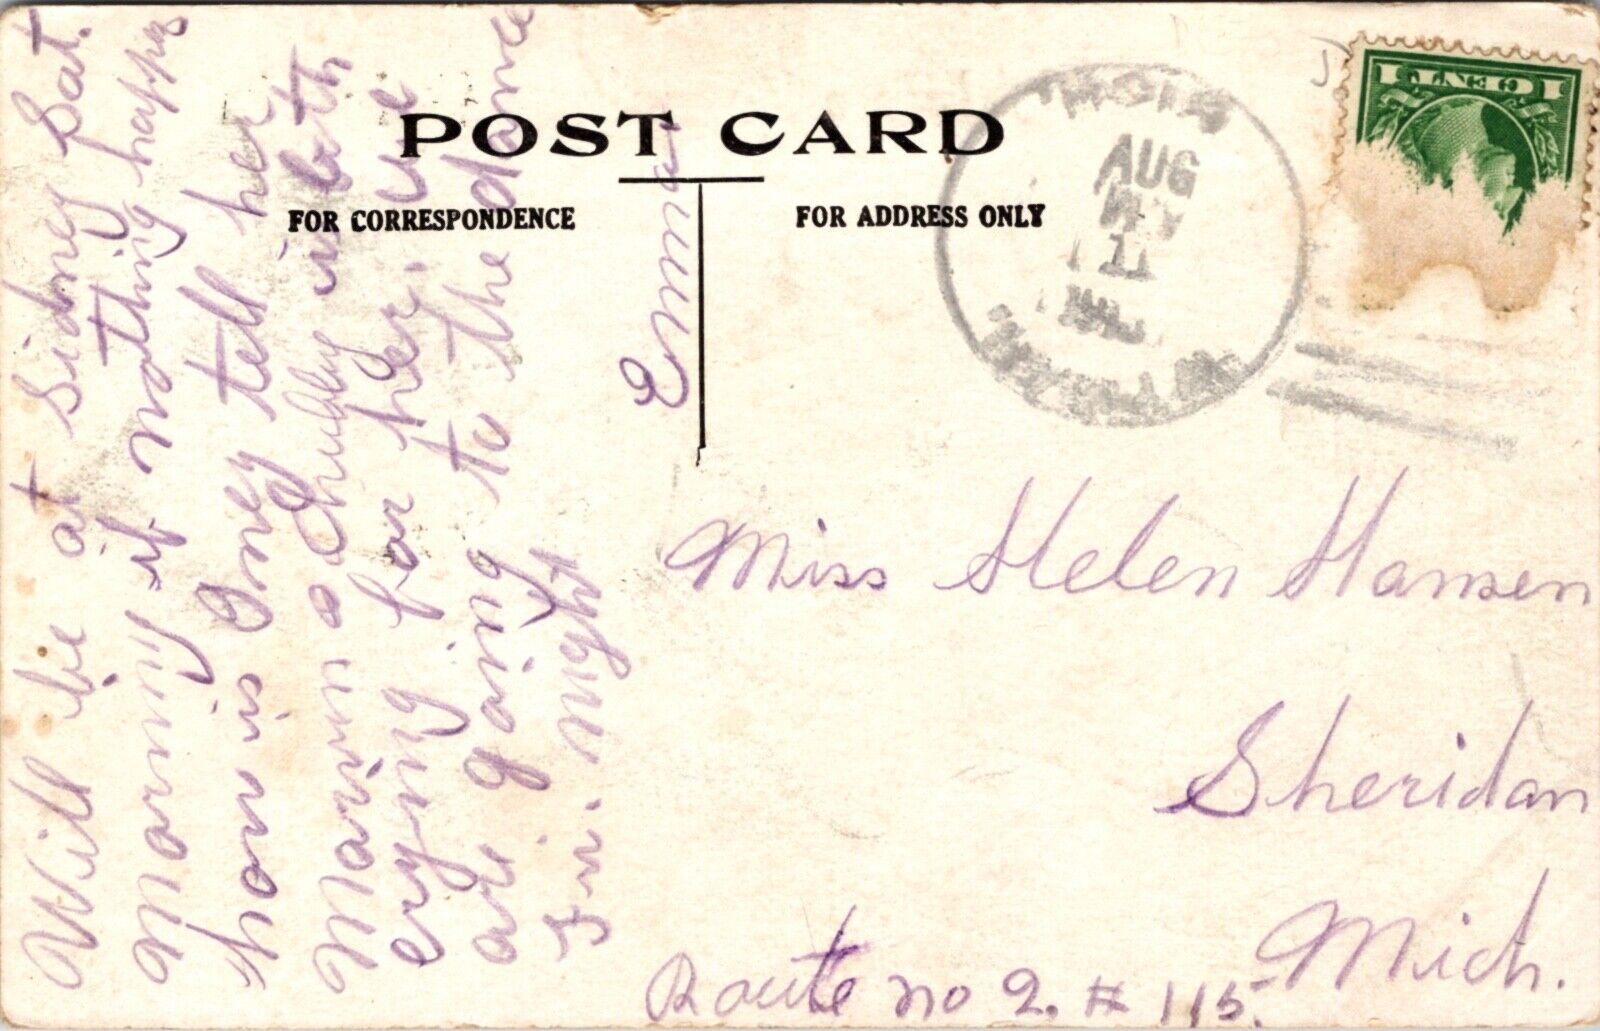 POST CARD
FOR CORRESPONDENCE
FOR ADDRESS ONLY
AUG
11
1 CENT 1
Will be at Sidney Sat.
morning if nothing happ
how is Iney tell her
Marvin & Chubby is both
crying for her. we
are going to the dance
Fri. night
Emma
Miss Helen Hansen
Sheridan
Mich.
Route no 2. # 115.